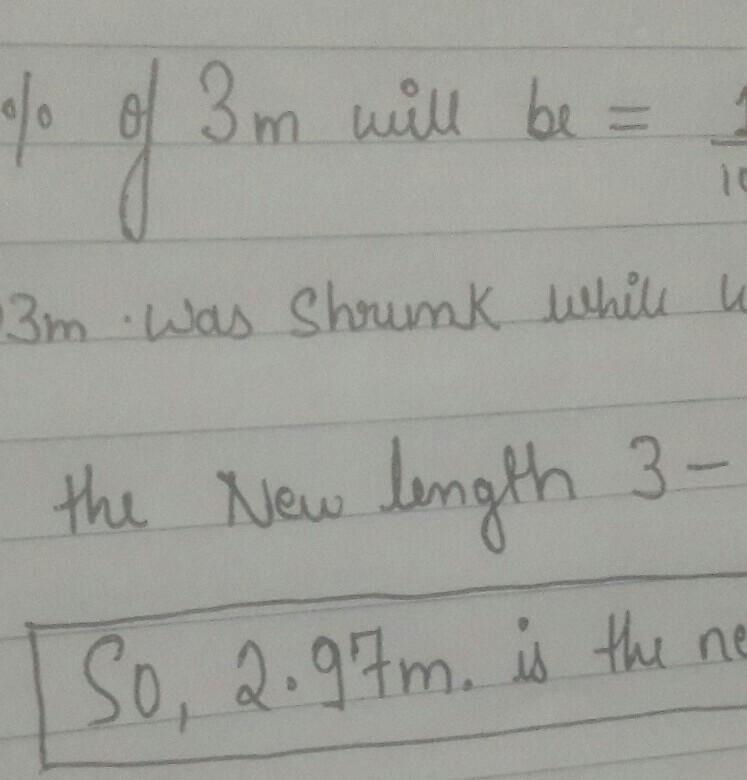 % of 3m will be = 1/10
3m. was Shrunk while
the New length 3 -
So, 2.97m. is the ne